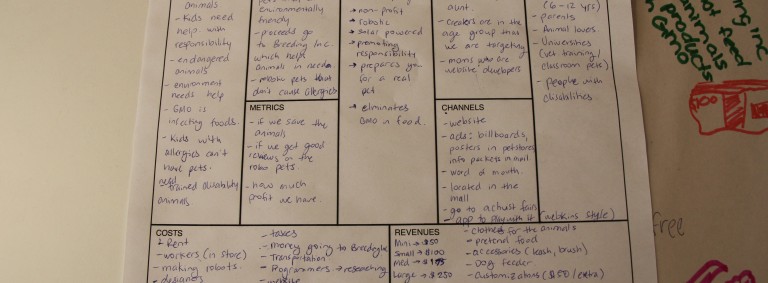 animals
- Kids need
help with
responsibility
- endangered
animals
- environment
needs help
- GMO is
infecting foods.
- Kids with
allergies can't
have pets.
need
trained disability
animals
environmentally
friendly
- proceeds go
to Breeding Inc.
which helps
animals in need.
- robotic pets that
don't cause allergies
METRICS
- if we save the
animals
- if we get good
reviews on the
robo pets.
- how much
profit we have.
→ non-profit
→ robotic
→ solar powered
→ promoting
responsibility
→ prepares you
for a real
pet
→ eliminates
GMO in food.
aunt.
- creators are in the
age group that
we are targeting
- moms who are
website developers
CHANNELS
- website
- ads: billboards,
posters in petstores,
info packets in mail.
- word of mouth.
- located in the
mall
- go to autism fairs
- app to play with it (webkins style)
(6-12 yrs)
- parents
- Animal lovers
- Universities
(vet training/
classroom pets)
- people with
disabilities.
COSTS
- Rent
- workers (in store)
- making robots.
- designers
- taxes
- money going to
- Transportation
- Programmers → researching
- website
REVENUES
Mini → $50
Small → $100
Med → $175
Large → $250
- clothes for the animals
- pretend food
- accessories (leash, brush)
- Dog feeder
- customizations ($50/extra)
ing inc
not feed
animals
products
GMO
free